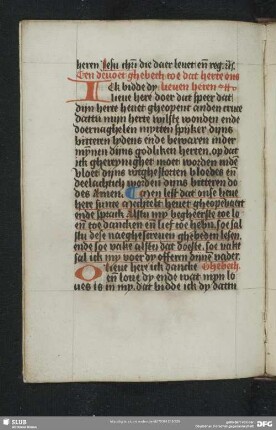 heren Jesu cħri die daer leuet eñ reg.
Een deuoet ghebech toe dat herte ons
Ick bidde dy lieuen heren
lieue here doer dat speer dat
dyn herte heuet gheopent anden cruce
dattu myn herte wilste wonden ende
doernaghelen mytten spyker dyns
bitteren lydens ende bewaren inder
mynnen dyns godliken herten. op dat
ich ghereynighet moet worden inde
vloet dyns wtghestorten bloedes eñ
deelachtich worden dyns bitteren do
des Amen. Men lest dat onse lieue
her sunte mechtelt heuet gheopebaert
ende sprack Alstu my begheerste toe lo
en toe dancken en lief toe hebn. soe sal
stu dese naeghescreuen ghebeden lesen.
ende soe vake alstu dat doeste. soe vake
sal ich my voer dy offeren mine vader.
O lieue her ich dancke Ghebech.
en loue dy ende wat myn lo
ues is in my. dat bidde ich dy dattu
SLUB
DFG